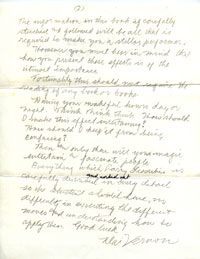 (2)
The information in this book if carefully
studied & followed will be all that is
required to make you a stellar performer.
However you must bear in mind that
how you present these effects is of the
utmost importance
Fortunately this should not require the
reading of any book or books
During your wakeful hours day or
night. Think Think Think. How should
I make this effect entertaining?
How should I keep it from being
confusing?
Then and only then will your magic
entertain & fascinate people.
Everything which Larry
carefully described in every detail
so the student should have no
difficulty in executing the different
moves and in understanding how to
apply them Good luck!
Dai Vernon